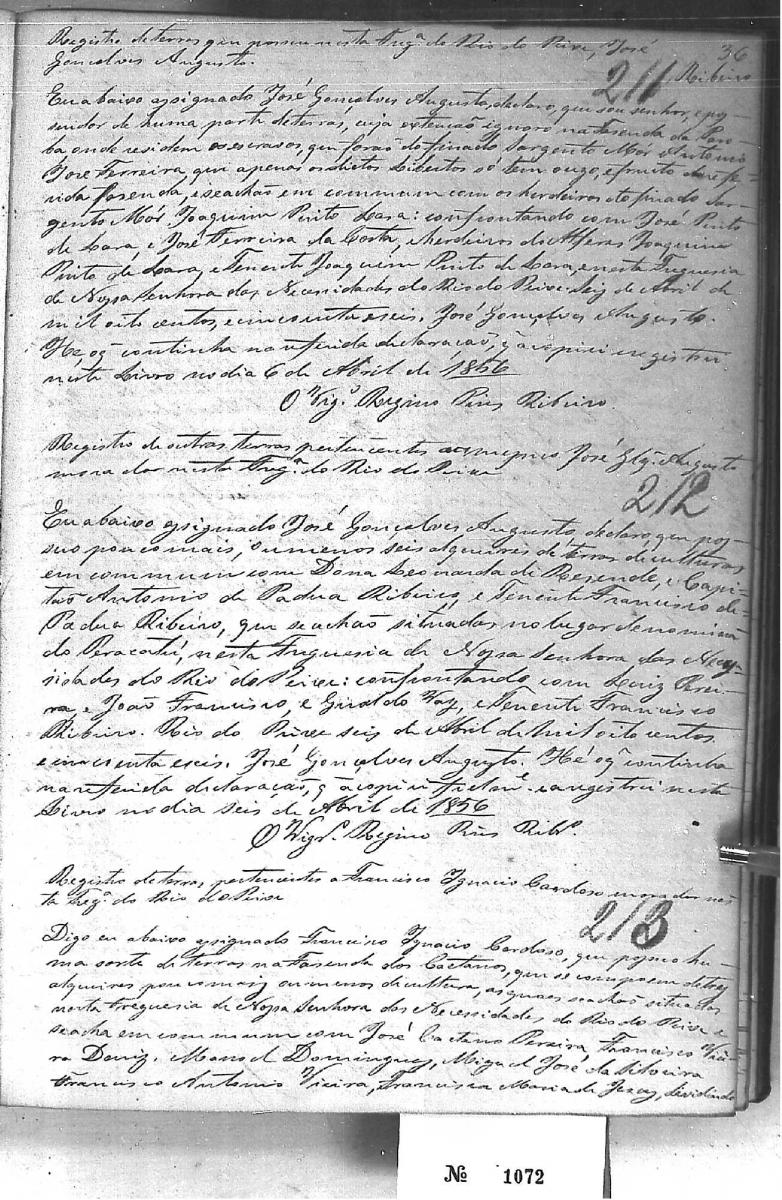 Registro de terras que possui nesta Freg.ª do Rio do Peixe, José
Gonçalves Augusto.
36
Ribeiro
211
Eu abaixo assignado José Gonçalves Augusto, declaro, que sou senhor, e pos-
suidor de huma parte de terras, cuja extenção ignoro na Fasenda da
onde residem os escravos, que forão do finado Sargento Mór Antonio
José Ferreira, que apenas os dictos Libertos só tem o uzo, e fructo da refe-
rida fasenda, e seachão em commum com os herdeiros do finado Sar-
gento Mór Joaquim Pinto Lara: confrontando com José Pinto
de Lara, e José Ferreira da Costa, e herdeiros do Alferes Joaquim
Pinto de Lara, e Tenente Joaquim Pinto de Lara, e nesta Freguesia
de Nossa Senhora das Necessidades do Rio do Peixe. Seis de Abril de
mil oito centos, e cincoenta e seis. José Gonçalves Augusto.
He oq̃ continha na referida declaração, q̃ a copiei e registrei
neste Livro no dia 6 de Abril de 1856
O Vig.º Regino Pires Ribeiro.
Registro de outras terras pertencentes ao mesmo José Glz. Augusto
morador nesta Freg.ª do Rio do Peixe
212
Eu abaixo assignado José Gonçalves Augusto, declaro, que pos-
suo pouco mais, ou menos seis alqueires de terras de culturas
em commum com Dona Leonarda de Resende, e Capi-
tão Antonio de Padua Ribeiro, e Tenente Francisco de
Padua Ribeiro, que se achão situadas no lugar denomina-
do Paracatú, nesta Freguesia de Nossa Senhora das Neces-
sidades do Rio do Peixe: confrontando com Luiz Perei-
ra, e João Francisco, e Giraldo Vaz, e Tenente Francisco
Ribeiro. Rio do Peixe seis de Abril de mil oito centos
e cincoenta e seis. José Gonçalves Augusto. Hé oq̃ continha
na referida declaração, q̃ a copiei fielm.e e a registrei neste
Livro no dia seis de Abril de 1856
O Vigr.º Regino Pires Rib.º
Registro de terras, pertencentes a Francisco Ignacio Cardoso morador nes-
ta Freg.ª do Rio do Peixe
213
Digo eu abaixo assignado Francisco Ignacio Cardoso, que possuo hu-
ma sorte de terras na Fasenda dos Caetanos, que se compoem de tres
alqueires pouco mais ou menos de cultura, as quaes seachão situadas
nesta Freguesia de Nossa Senhora das Necessidades do Rio do Peixe e
seacha em commum com José Caetano Pereira, Francisco Viei-
ra Deniz, Manoel Domingues, Miguel José da Silveira
Francisco Antonio Vieira, Francisca Maria de Jesus, devidindo
Nº 1072